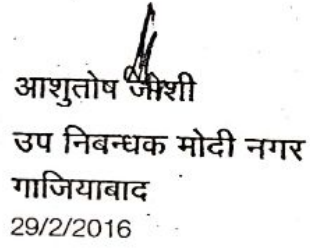 आशुतोष जोशी
उप निबन्धक मोदी नगर
गाजियाबाद
29/2/2016